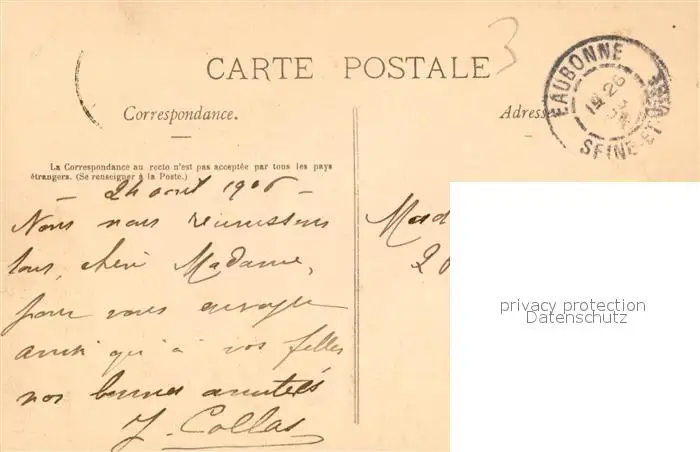 3
CARTE POSTALE
Correspondance.
Adresse
EAUBONNE
SEINE-ET-OISE
La Correspondance au recto n'est pas acceptée par tous les pays
étrangers. (Se renseigner à la Poste.)
— 24 avril 1906 —
Nous nous réunissons
tous, chère Madame,
pour vous envoyer
ainsi qu'à vos filles
nos bonnes amitiés
J. Collas
Mad
20
privacy protection
Datenschutz